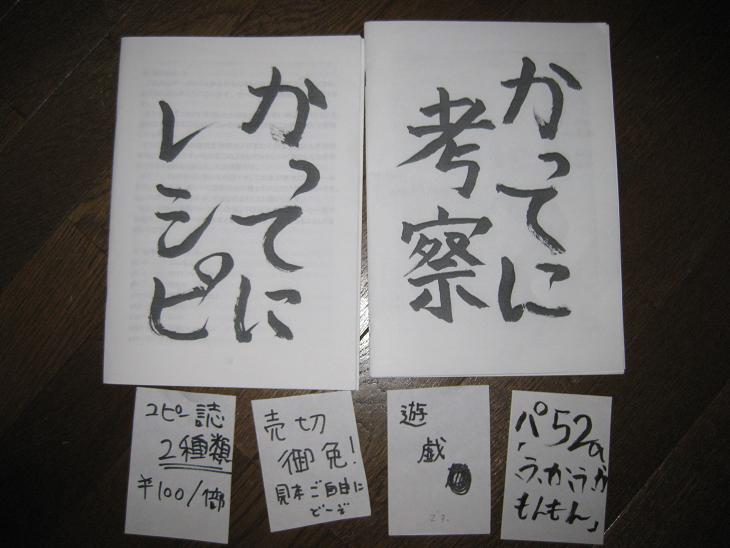 かってに
レシピ
かってに
考察
コピー誌
2種類
¥100/部
売切
御免!
見本ご自由に
どーぞ
遊戯
パ52a
「うかうか
もんもん」